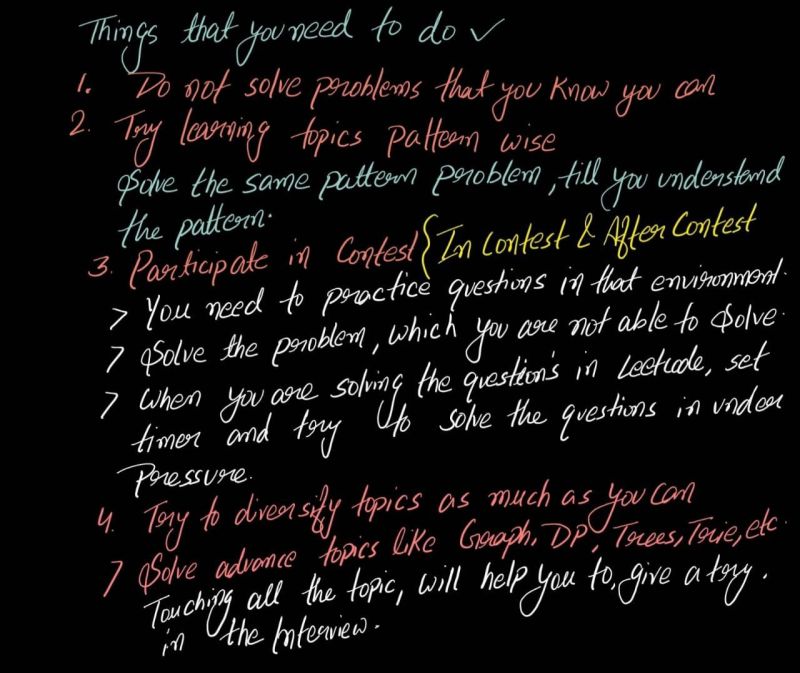 Things that you need to do ✓
1. Do not solve problems that you know you can
2. Try learning topics pattern wise
Solve the same pattern problem, till you understand
the pattern.
3. Participate in Contest { In Contest & After Contest
> You need to practice questions in that environment.
> Solve the problem, which you are not able to Solve.
> When you are solving the question's in leetcode, set
timer and try to solve the questions in under
Pressure.
4. Try to diversify topics as much as you can
> Solve advance topics like Graph, DP, Trees, Trie, etc.
Touching all the topic, will help you to, give a try.
in the Interview.